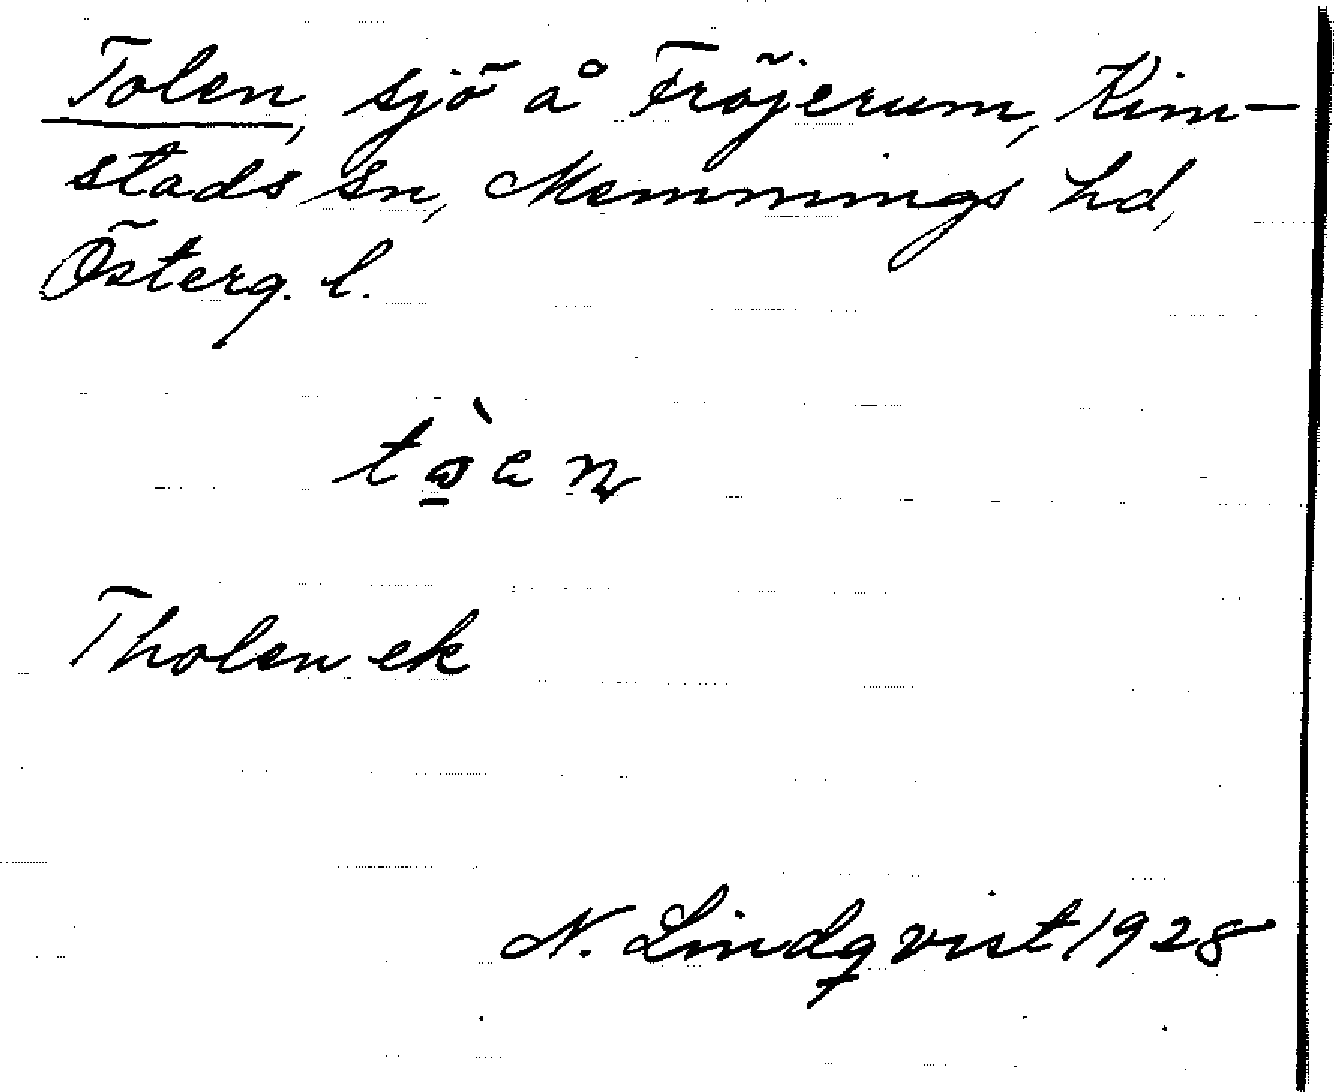 Tolen, sjö å Fröjerum, Kim-
stads sn, Memmings hd,
Österg. l.
Tholen ek
N. Lindqvist 1928